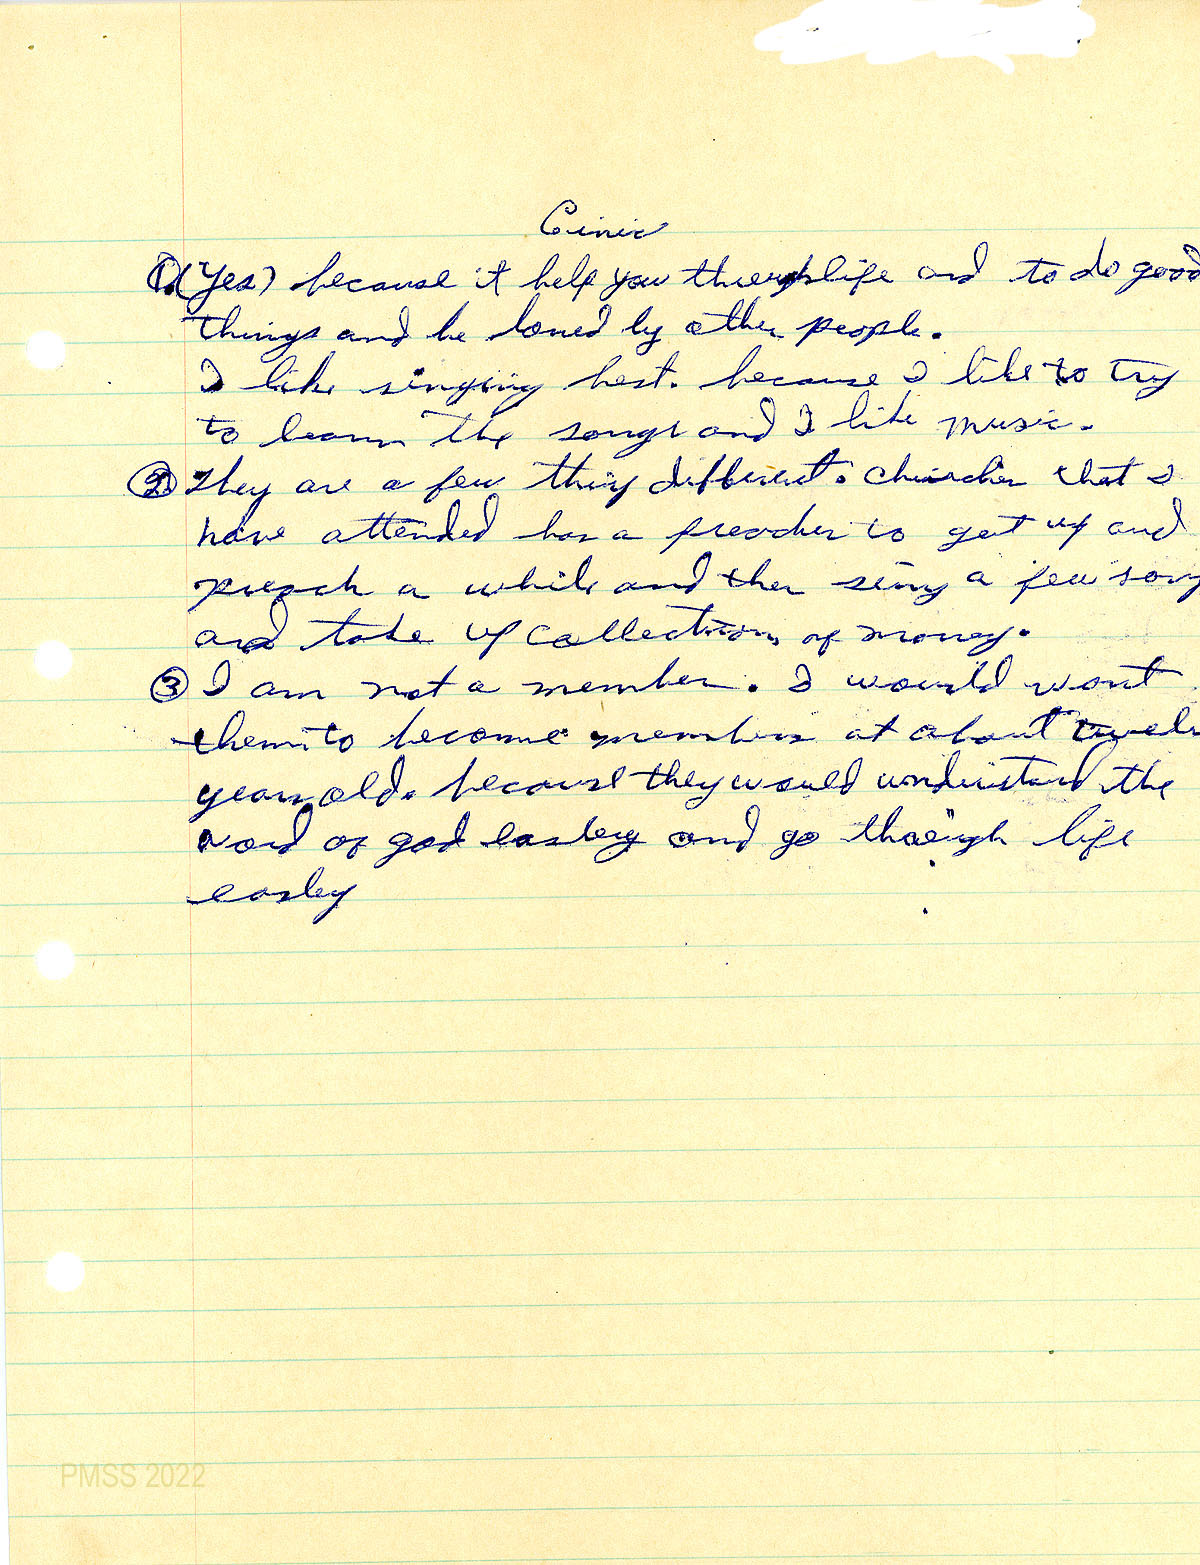 Civic
1. (Yes) because it help you through life and to do good
things and be loved by other people.
I like singing best. because I like to try
to learn the songs and I like music.
2 They are a few thing different. Churches that I
have attended has a preacher to get up and
preach a while and then sing a few song
and take up collection of money.
3 I am not a member. I would want
them to become members at about twelve
years old. because they would understand the
word of god easley and go though life
easley
PMSS 2022